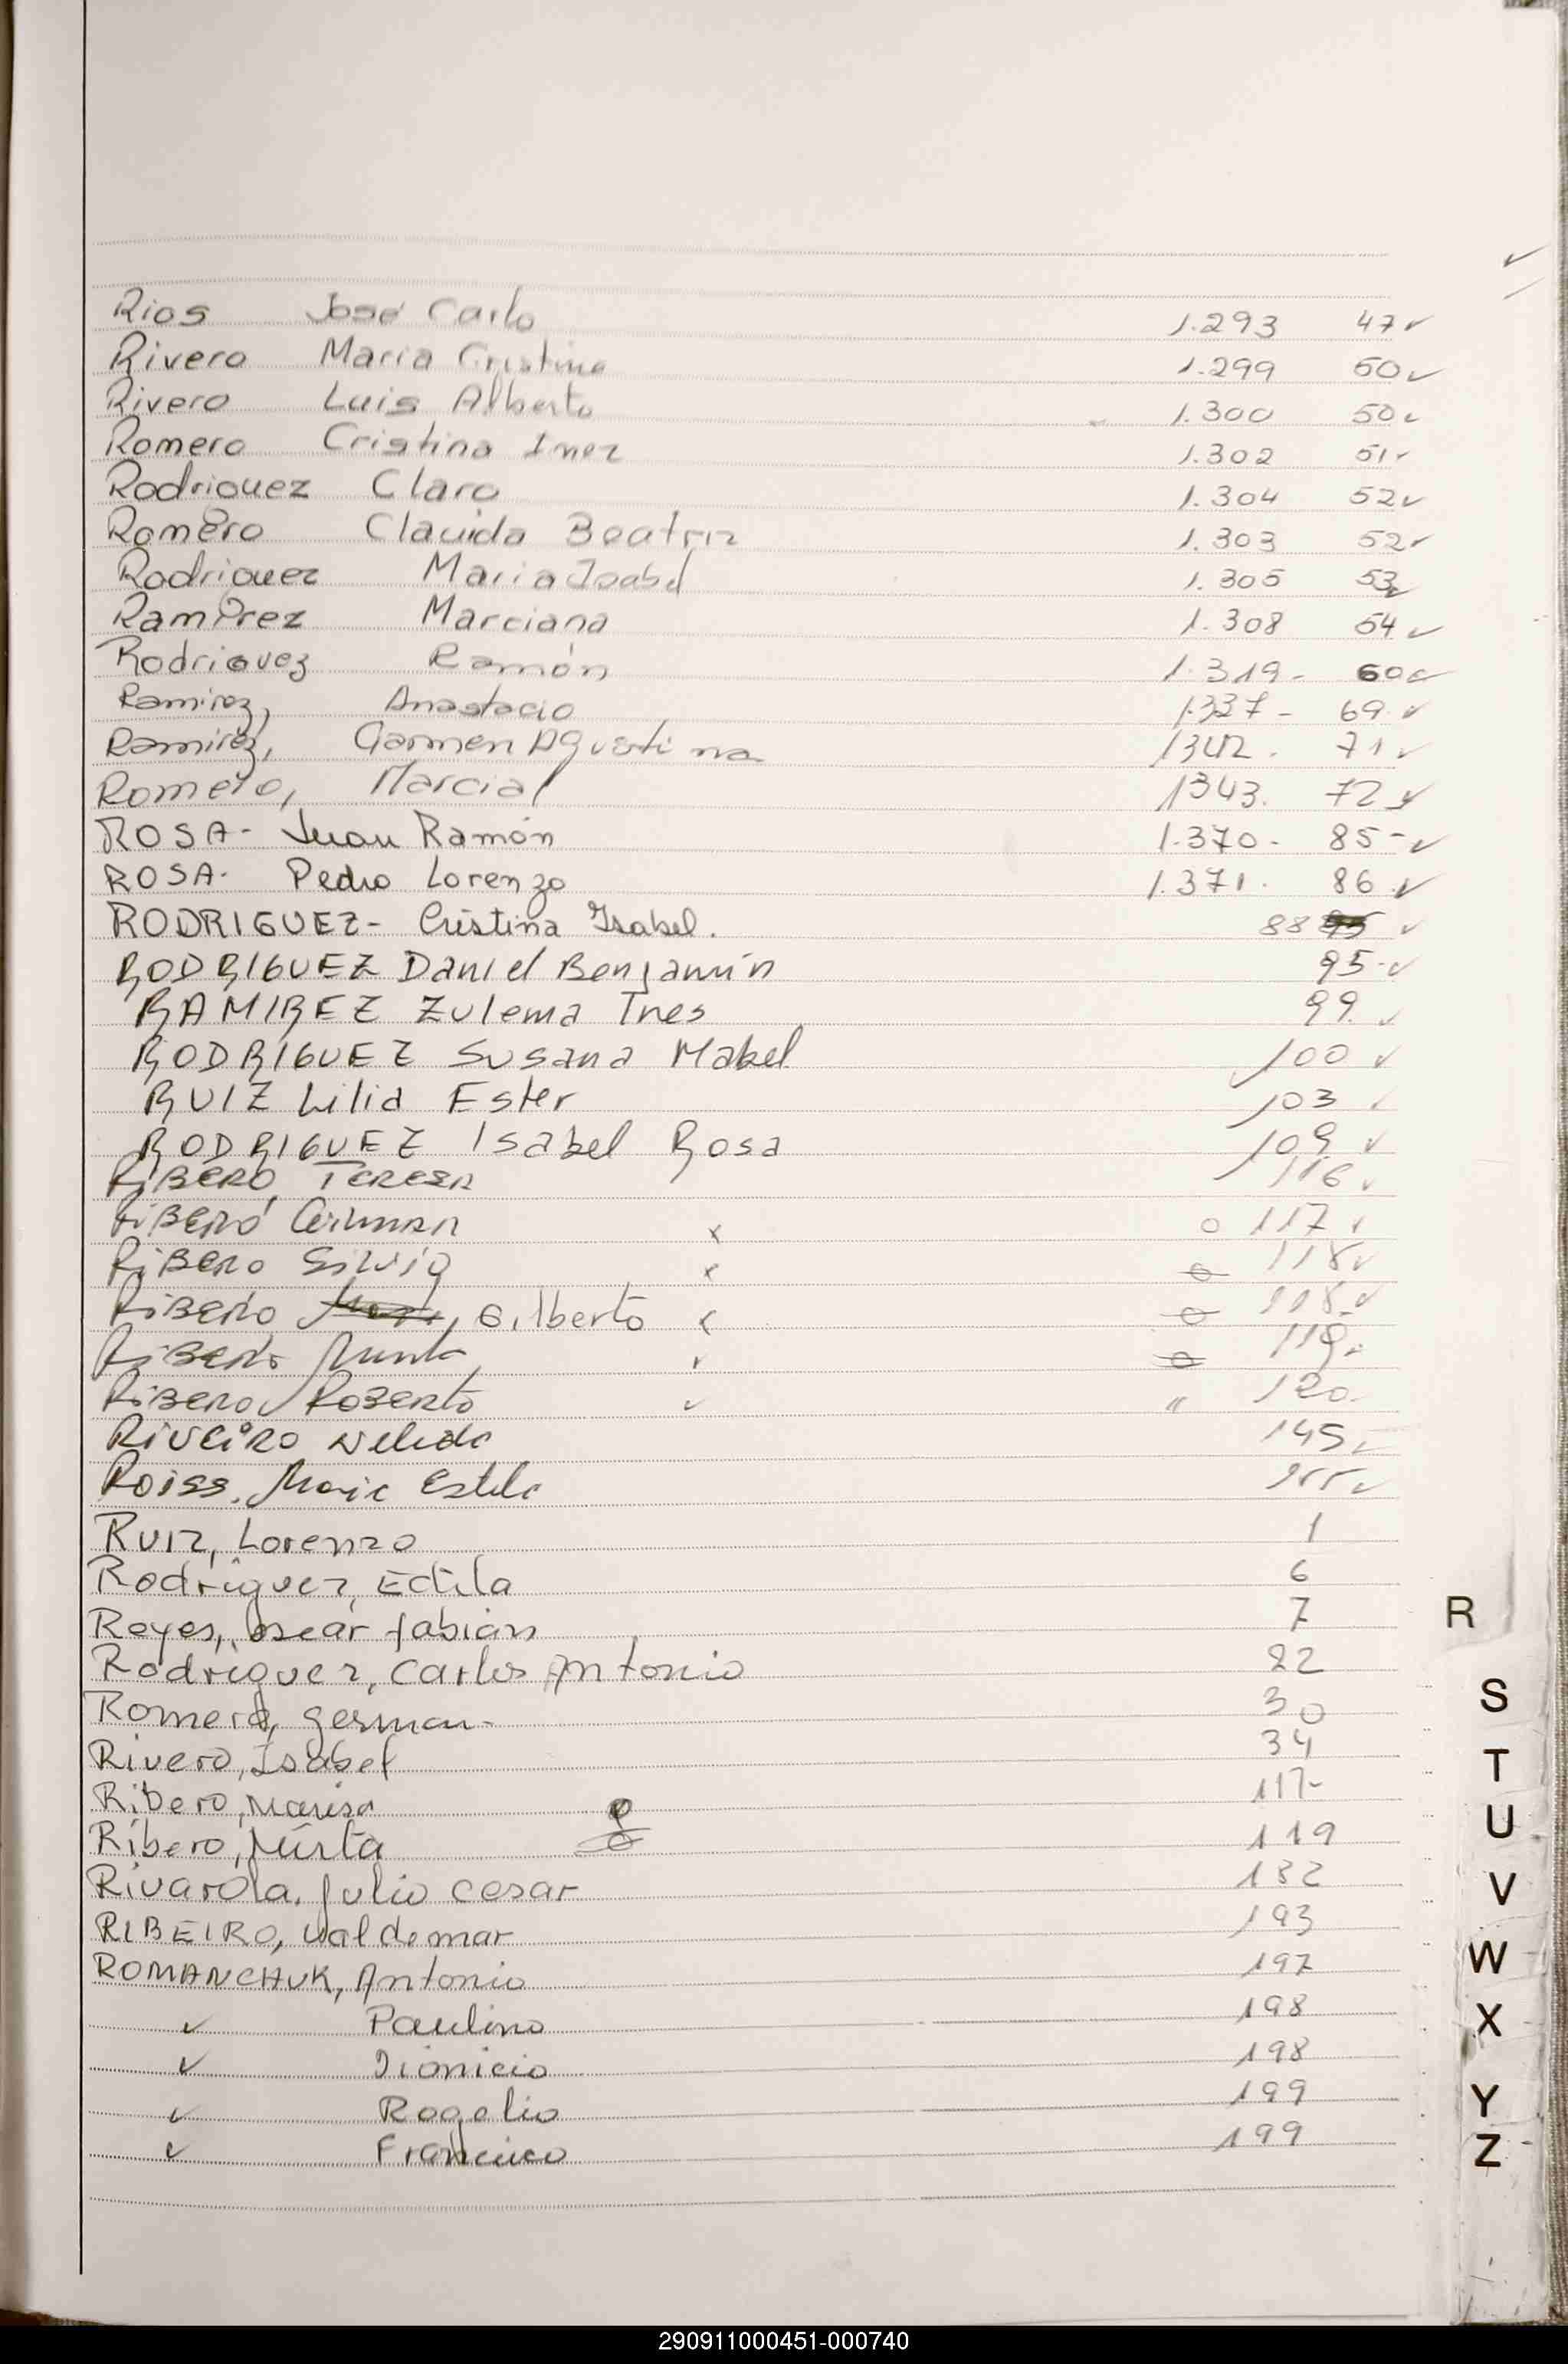 Rios José Carlo 1.293 47✓
Rivero Maria Cristina 1.299 50✓
Rivero Luis Alberto 1.300 50✓
Romero Cristina Inez 1.302 51✓
Rodriguez Claro 1.304 52✓
Romero Clauida Beatriz 1.303 52✓
Rodriguez Maria Isabel 1.305 53✓
Ramirez Marciana 1.308 54✓
Rodriguez Ramón 1.319- 60✓
Ramirez, Anastacio 1.337- 69.✓
Ramirez, Carmen Agustina 1342. 71✓
Romero, Marcial 1343. 72✓
ROSA- Juan Ramón 1.370- 85-✓
ROSA- Pedro Lorenzo 1.371. 86.✓
RODRIGUEZ- Cristina Isabel. 88 ✓
RODRIGUEZ Daniel Benjamín 95-✓
RAMIREZ Zulema Ines 99. ✓
RODRIGUEZ Susana Mabel 100 ✓
RUIZ Lilia Ester 103 ✓
RODRIGUEZ Isabel Rosa 109 ✓
RIBERO TERESA 116 ✓
RIBERO x o 117 ✓
RIBERO Silvio x 118✓
RIBERO , Gilberto 118.✓
RIBERO 119.
RIBERO ROBERTO ✓ " 120.
RIVEIRO Nelida 145.
Roiss. Maria Estela ✓
Ruiz, Lorenzo 1
Rodriguez, Edila 6
Reyes, oscar fabián 7
Rodriguez, Carlos Antonio 22
Romero, German- 30
Rivero, Isabel 34
R
Ribero, Marisa 117-
S
Ribero, Mirta 119
T
Rivarola. Julio cesar 182
U
RIBEIRO, Waldemar 193
V
ROMANCHUK, Antonio 197
W
✓ Paulino 198
X
✓ Dionicio 198
✓ Rogelio 199
Y
✓ Francisco 199
Z
290911000451-000740